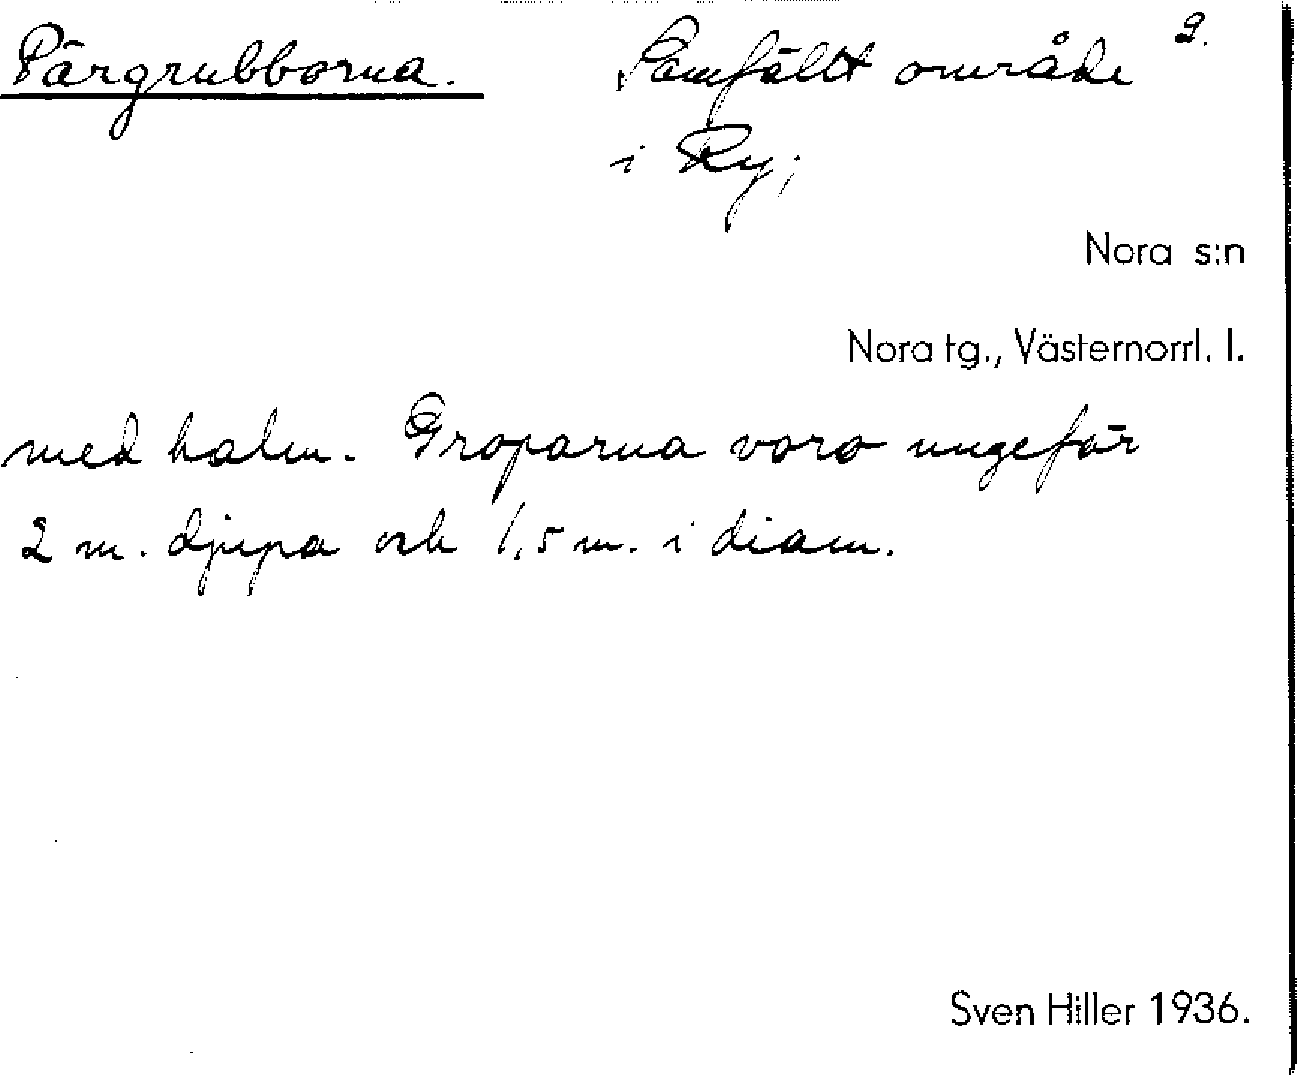 Pärgrubborna. Samfällt område 2.
i Ry;
Nora s:n
Nora tg., Västernorrl. l.
med halm. Groparna voro ungefär
2 m. djupa och 1,5 m. i diam.
Sven Hiller 1936.